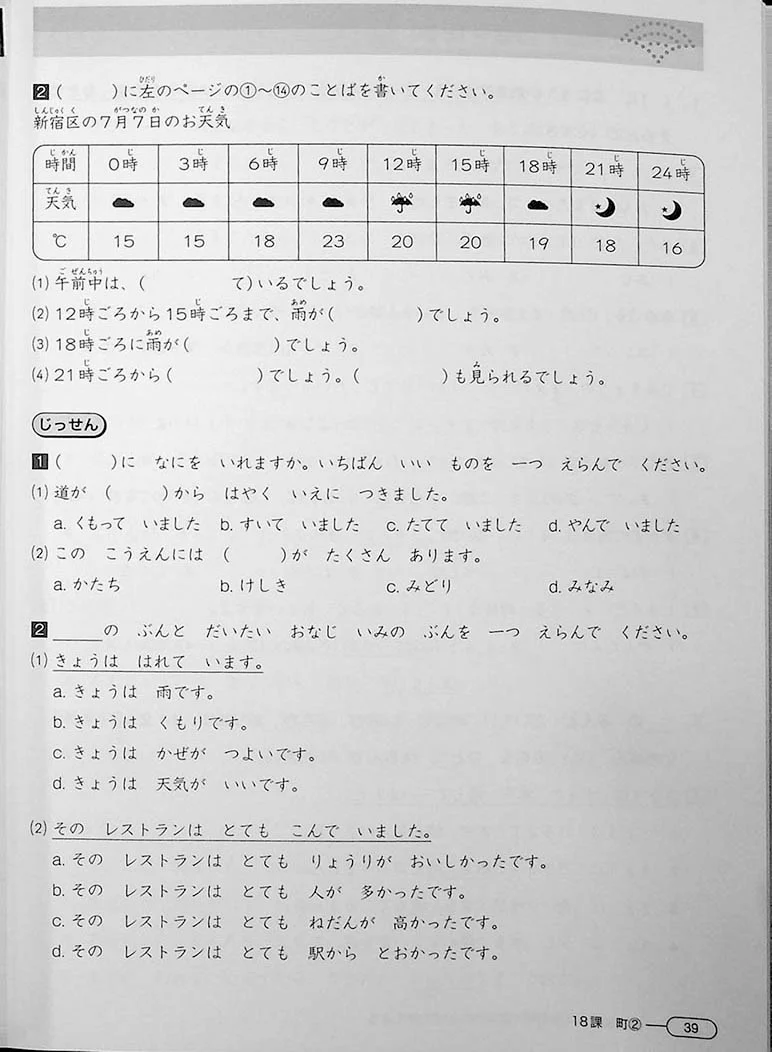 2 (　　　)に左のページの①～⑭のことばを書いてください。
新宿区の7月7日のお天気
時間 0時 3時 6時 9時 12時 15時 18時 21時 24時
天気
℃ 15 15 18 23 20 20 19 18 16
(1) 午前中は、(　　　　　て)いるでしょう。
(2) 12時ごろから15時ごろまで、雨が(　　　　　)でしょう。
(3) 18時ごろに雨が(　　　　　)でしょう。
(4) 21時ごろから(　　　　　)でしょう。(　　　　　)も見られるでしょう。
じっせん
1 (　　　)に　なにを　いれますか。いちばん　いい　ものを　一つ　えらんで　ください。
(1) 道が　(　　　)から　はやく　いえに　つきました。
a. くもって　いました　b. すいて　いました　c. たてて　いました　d. やんで　いました
(2) この　こうえんには　(　　　)が　たくさん　あります。
a. かたち　b. けしき　c. みどり　d. みなみ
2 ＿＿＿の　ぶんと　だいたい　おなじ　いみの　ぶんを　一つ　えらんで　ください。
(1) きょうは　はれて　います。
a. きょうは　雨です。
b. きょうは　くもりです。
c. きょうは　かぜが　つよいです。
d. きょうは　天気が　いいです。
(2) その　レストランは　とても　こんで　いました。
a. その　レストランは　とても　りょうりが　おいしかったです。
b. その　レストランは　とても　人が　多かったです。
c. その　レストランは　とても　ねだんが　高かったです。
d. その　レストランは　とても　駅から　とおかったです。
18課　町② 39